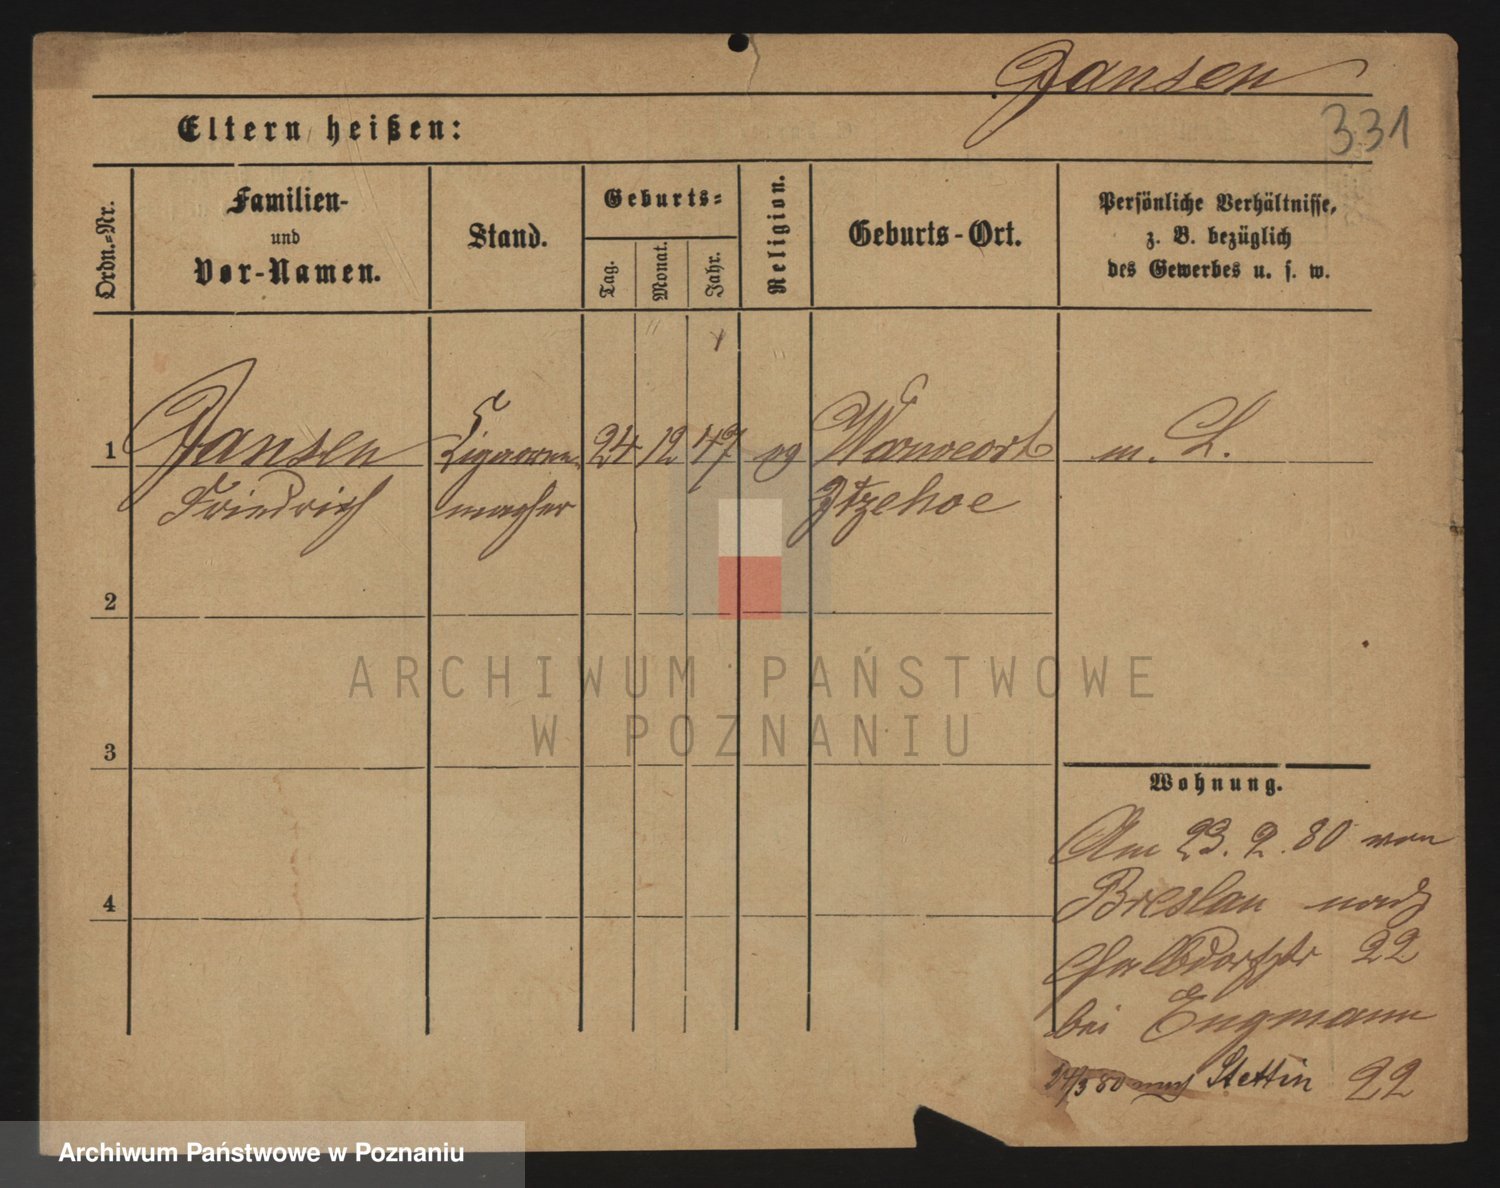 Jansen
331
Eltern heißen:
Ordn.-Nr.
Familien-
und
Vor-Namen.
Stand.
Geburts-
Tag.
Monat.
Jahr.
Religion.
Geburts-Ort.
Persönliche Verhältnisse,
z. B. bezüglich
des Gewerbes u. s. w.
1 Jansen Cigarren 24 12 47 eg m. L.
Friedrich macher Itzehoe
2
3
4
Wohnung.
Am 23. 2. 80 von
Breslau nach
Halbdorfstr 22
bei Engmann
80 nach Stettin 22
ARCHIWUM PAŃSTWOWE
W POZNANIU
Archiwum Państwowe w Poznaniu